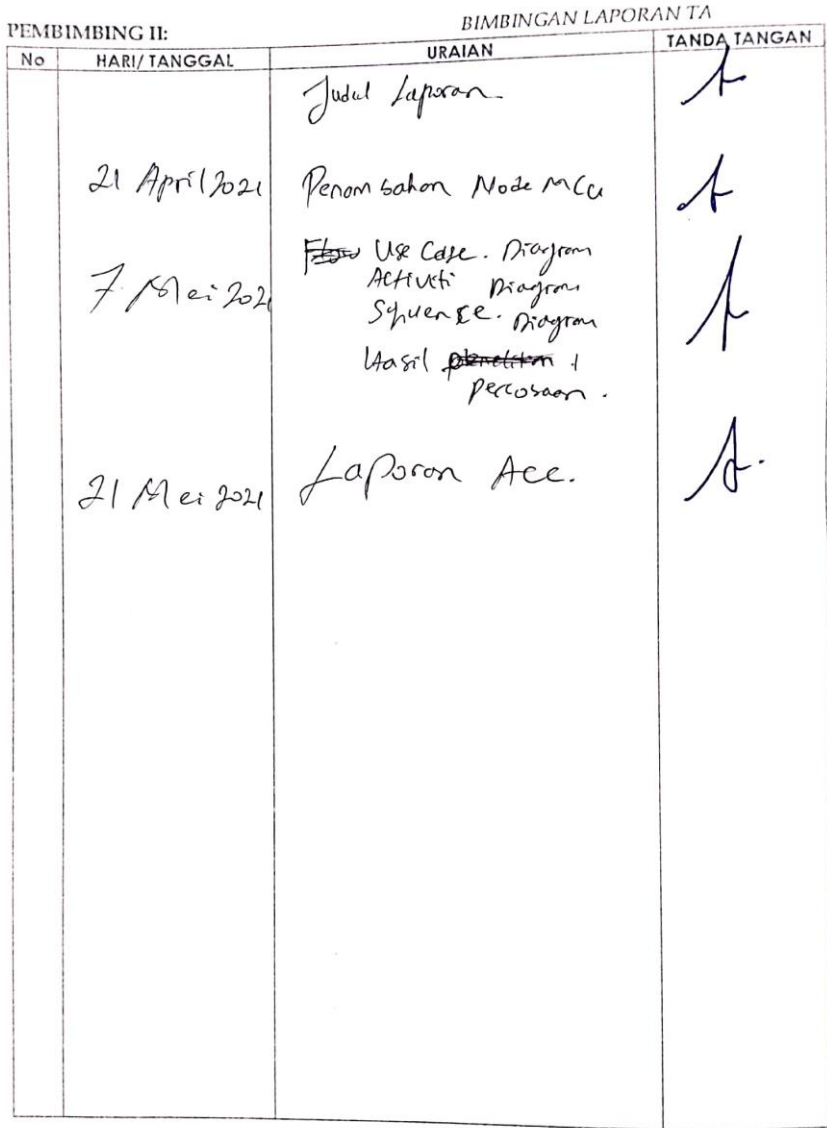 BIMBINGAN LAPORAN TA
PEMBIMBING II:
No HARI/ TANGGAL URAIAN TANDA TANGAN
Judul Laporan
21 April 2021 Penambahan Node MCu
7 Mei 2021 Flow Use Case. Diagram
Activiti Diagram
Squence. Diagram
Hasil penelitian
percobaan.
21 Mei 2021 Laporan Acc.